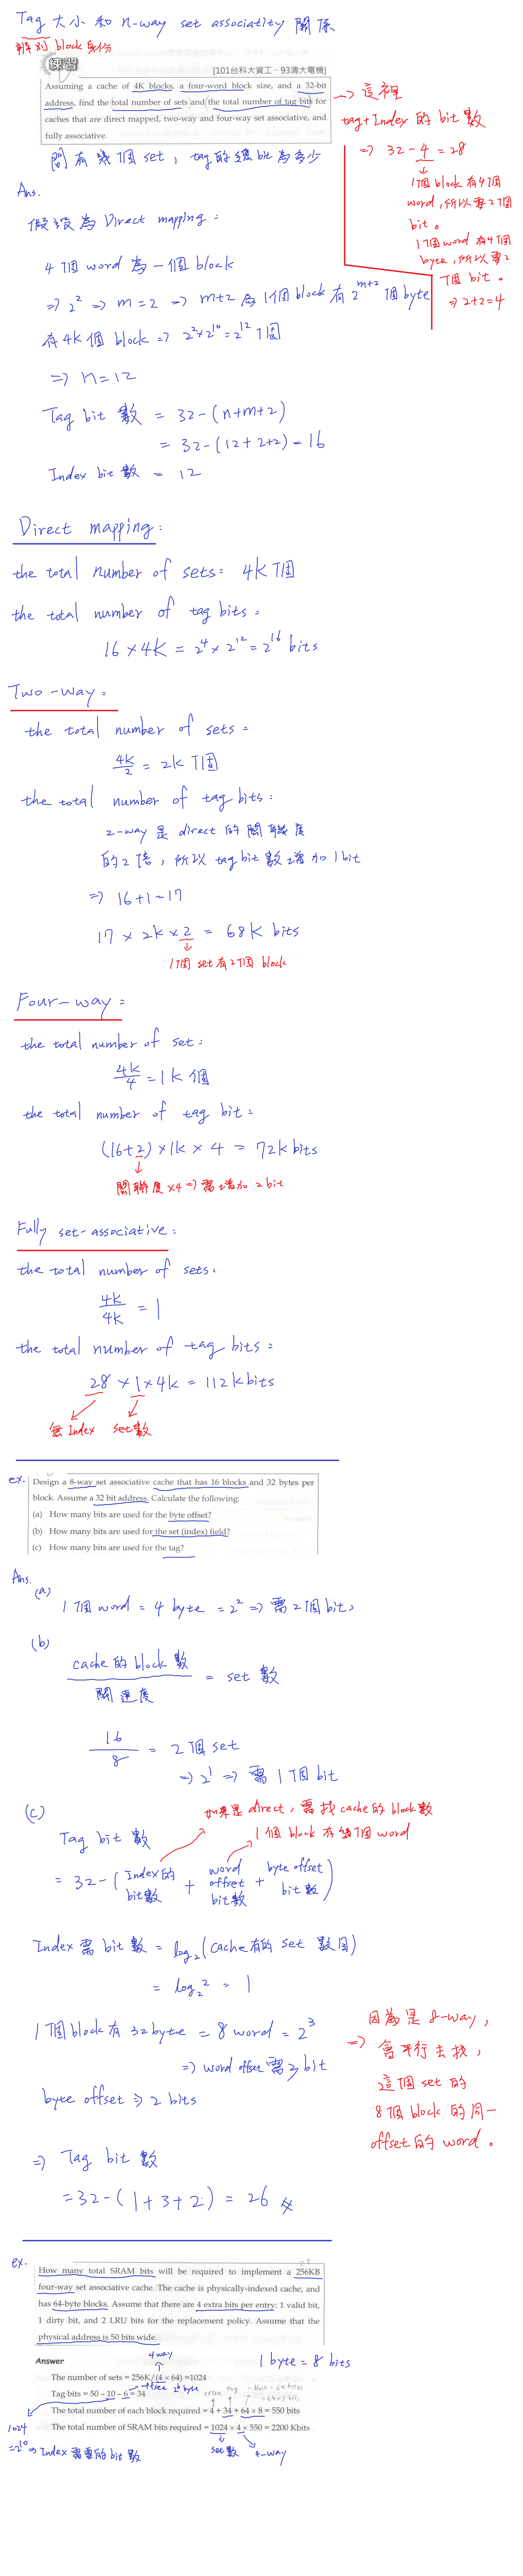 Tag 大小和 n-way set associatity 關係
辨別 block 身份
練習
[101台科大資工、93清大電機]
Assuming a cache of 4K blocks, a four-word block size, and a 32-bit
address, find the total number of sets and the total number of tag bits for
caches that are direct mapped, two-way and four-way set associative, and
fully associative.
→ 這裡
tag+Index 的 bit 數
⇒ 32-4=28
↓
1個block有4個
word,所以要2個
bit。
1個word有4個
byte,所以要2
個bit。
⇒ 2+2=4
問有幾個 set , tag的總bit為多少
Ans.
假設為 Direct mapping :
4個word 為一個block
⇒ 2² ⇒ m=2 ⇒ m+2 為1個block有 2^(m+2) 個byte
有4K個block ⇒ 2²×2^10=2^12個
⇒ n=12
Tag bit 數 = 32-(n+m+2)
= 32-(12+2+2)=16
Index bit 數 = 12
Direct mapping:
the total number of sets: 4K個
the total number of tag bits:
16×4K = 2⁴×2^12=2^16 bits
Two-way:
the total number of sets:
4K/2 = 2K個
the total number of tag bits:
2-way 是 direct 的關聯度
的2倍,所以 tag bit 數增加1bit
⇒ 16+1=17
17 × 2K × 2 = 68K bits
↓
1個set有2個block
Four-way:
the total number of set:
4K/4 = 1K個
the total number of tag bit:
(16+2)×1K×4 = 72K bits
↓
關聯度×4⇒需增加2bit
Fully set-associative:
the total number of sets:
4K/4K = 1
the total number of tag bits:
28×1×4K=112K bits
無Index set數
ex.
Design a 8-way set associative cache that has 16 blocks and 32 bytes per
block. Assume a 32 bit address. Calculate the following:
(a) How many bits are used for the byte offset?
(b) How many bits are used for the set (index) field?
(c) How many bits are used for the tag?
Ans.
(a)
1個word = 4 byte = 2² ⇒ 需2個bit,
(b)
cache的block數/關連度 = set 數
16/8 = 2個set
⇒ 2¹ ⇒ 需1個bit
(c)
如果是direct,需找cache的block數
1個block有幾個word
Tag bit 數
= 32-(Index的bit數 + word offset bit數 + byte offset bit數)
Index需bit數 = log₂(cache有的set數目)
= log₂2 = 1
1個block有32byte = 8 word = 2³
⇒ word offset 需3bit
byte offset ⇒ 2 bits
因為是8-way,
⇒ 會平行去找,
這個set的
8個block的同一
offset的word。
⇒ Tag bit 數
=32-(1+3+2) = 26
ex.
How many total SRAM bits will be required to implement a 256KB
four-way set associative cache. The cache is physically-indexed cache, and
has 64-byte blocks. Assume that there are 4 extra bits per entry: 1 valid bit,
1 dirty bit, and 2 LRU bits for the replacement policy. Assume that the
physical address is 50 bits wide.
Answer
4 way
1 byte = 8 bits
The number of sets = 256K/(4 × 64) =1024
offset 2⁶ byte
Tag bits = 50 – 10 – 6 = 34
extra tag
The total number of each block required = 4 + 34 + 64 × 8 = 550 bits
The total number of SRAM bits required = 1024 × 4 × 550 = 2200 Kbits
1024
=2^10⇒Index需要的bit數
set數 4-way